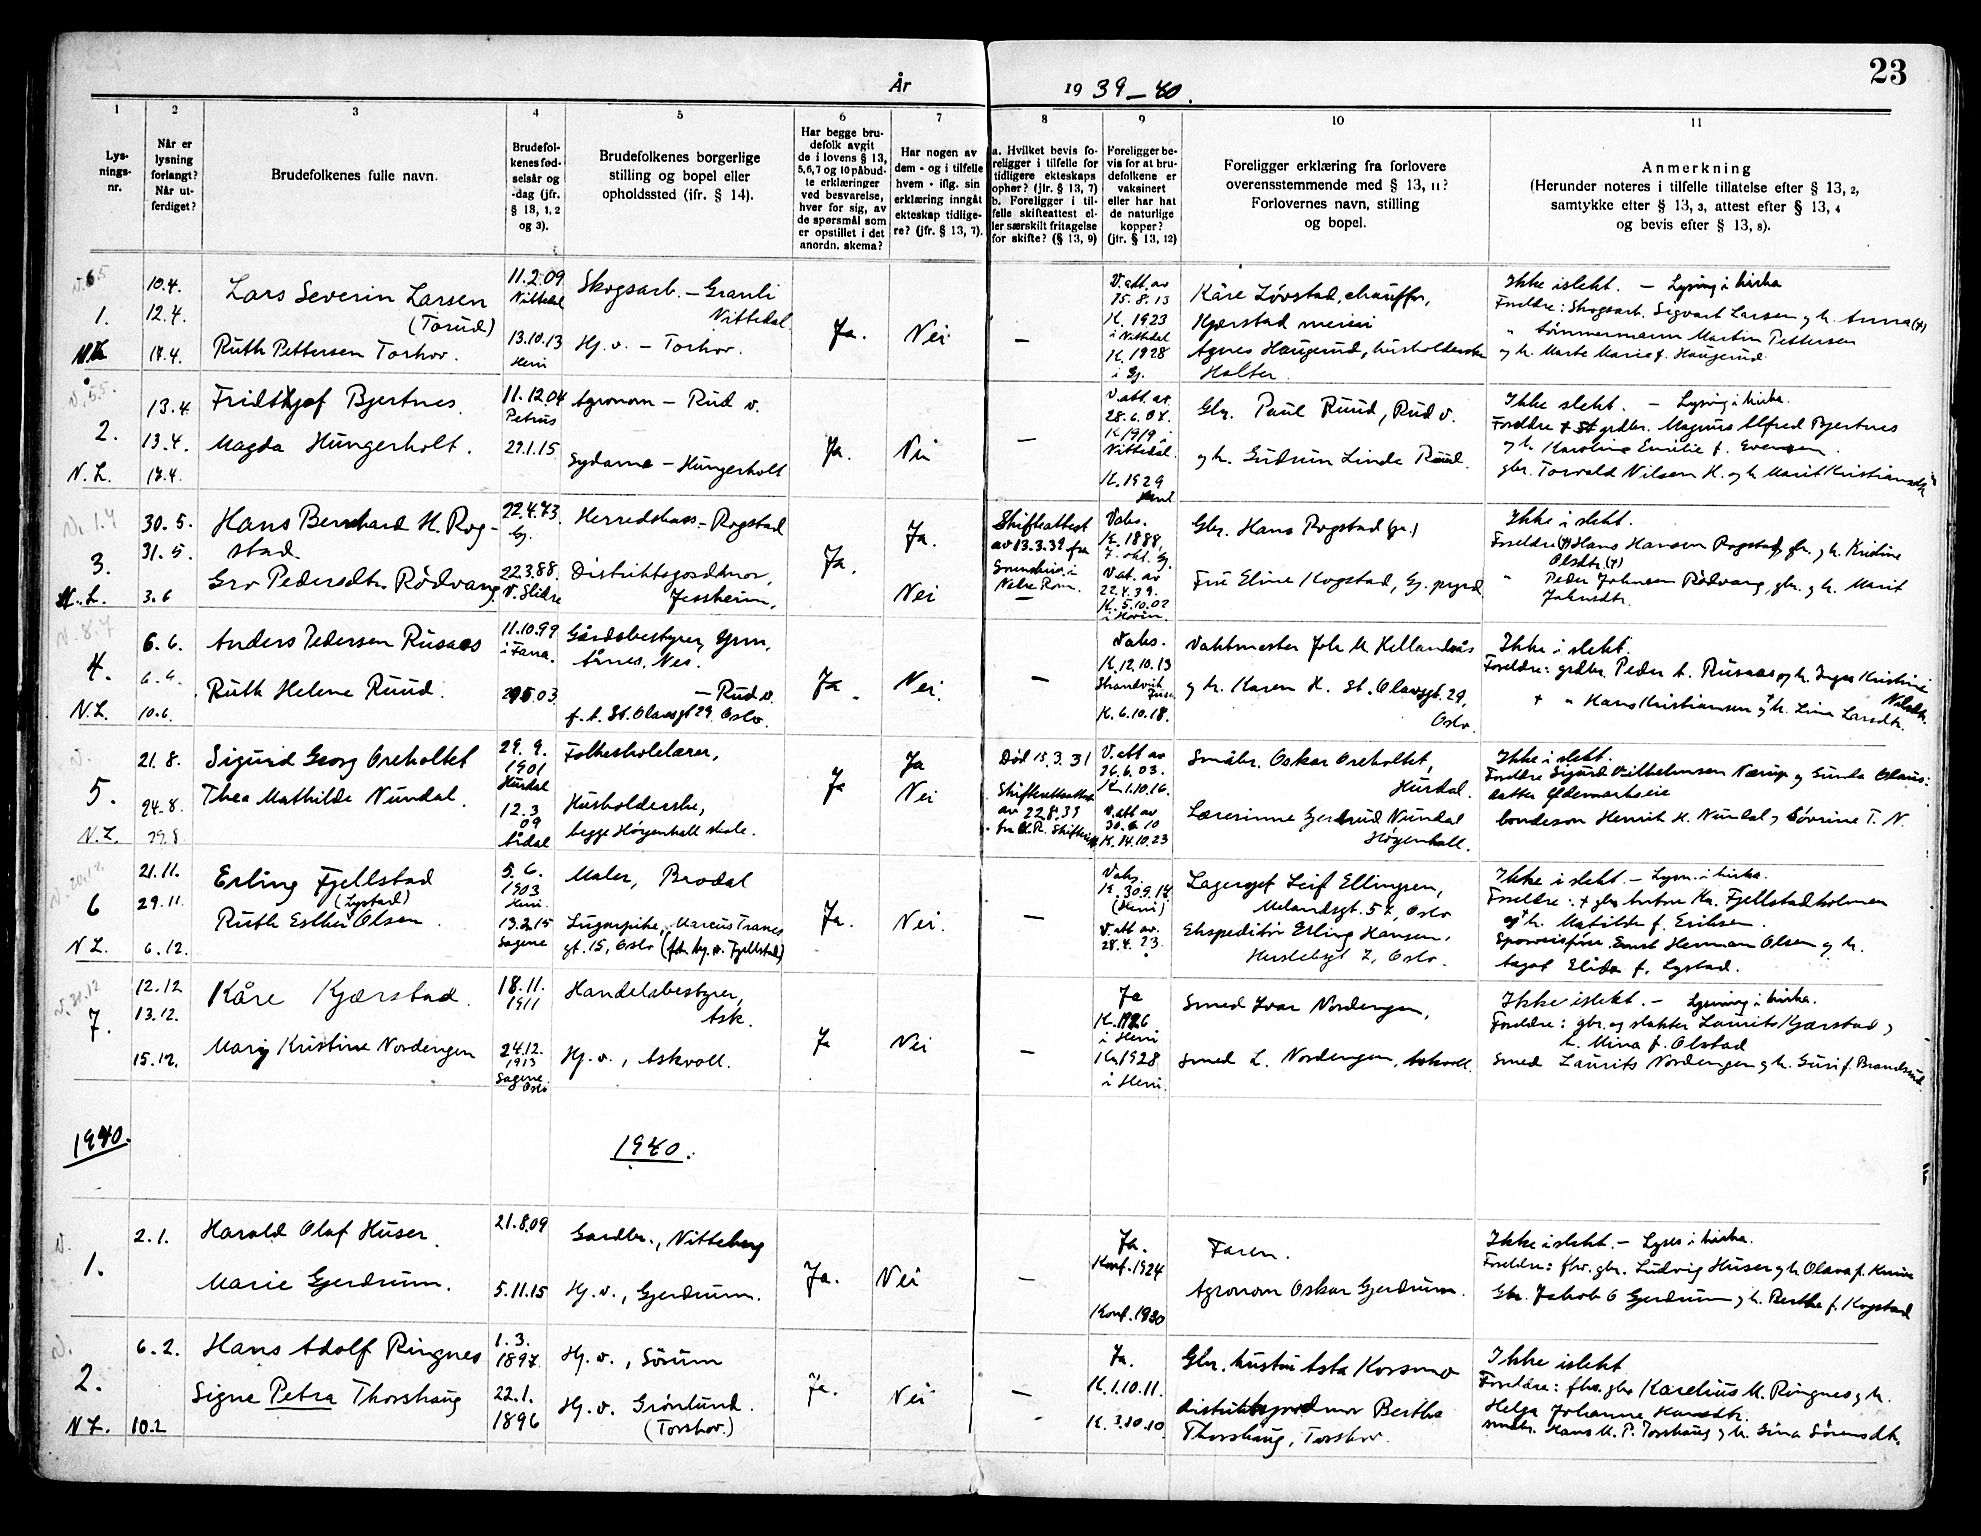 23
År 1939–40.
1
2
3
4
5
6
7
8
9
10
11
Lys-
nings-
nr.
Når er
lysning
forlangt?
Når ut-
ferdiget?
Brudefolkenes fulle navn.
Brudefol-
kenes fød-
selsår og
-dag (jfr.
§ 13, 1, 2
og 3).
Brudefolkenes borgerlige
stilling og bopel eller
opholdssted (ifr. § 14).
Har begge bru-
defolk avgit
de i lovens § 13,
5, 6, 7 og 10 påbud-
te erklæringer
ved besvarelse,
hver for sig, av
de spørsmål som
er opstillet i det
anordn. skema?
Har nogen av
dem - og i tilfelle
hvem - iflg. sin
erklæring inngåt
ekteskap tidlige-
re? (jfr. § 13, 7).
a. Hvilket bevis fo-
religger i tilfelle for
tidligere ekteskaps
opher? (jfr. § 13, 7)
b. Foreligger i til-
felle skifteattest el-
ler særskilt fritagelse
for skifte? (§ 13, 9)
Foreligger be-
vis for at bru-
defolkene er
vaksinert
eller har hat
de naturlige
kopper?
(jfr. § 13, 12)
Foreligger erklæring fra forlovere
overensstemmende med § 13, 11?
Forlovernes navn, stilling
og bopel.
Anmerkning
(Herunder noteres i tilfelle tillatelse efter § 13, 2,
samtykke efter § 13, 3, attest efter § 13, 4
og bevis efter § 13, 8).
1.
10.4.
12.4.
14.4.
Lars Severin Larsen
(Torud)
Ruth Pettersen Torhov.
11.2.09
Nittedal
13.10.13
Heni
Skogsarb. – Granli
Nittedal.
Hj. v. – Torhov.
Ja.
Nei
–
V. att. av
15.8.13
K. 1923
i Nittedal
K. 1928
i Gj.
Kåre Løvstad, chauffør,
Kjærstad meieri
Agnes Haugerud, husholderske
Holter.
Ikke i slekt. – Lysing i kirka
Foreldre: Skogsarb. Sigvart Larsen og h. Anna (+)
" tømmermann Martin Pettersen
og h. Marte Marie f. Haugerud
2.
N. L.
13.4
13.4.
17.4.
Fridthjof Bjertnes.
Magda Hungerholt.
11.12.04
Petrus
29.1.15
Agronom – Rud v.
Sydame – Hungerholt
Ja.
Nei
–
V. att. av
28.6.07.
K 1919 i
Nittedal.
K. 1929
Heni
Gbr. Paul Ruud, Rud v.
og h. Gudrun Linda Ruud.
Ikke slekt. – Lysing i kirka.
Foreldre grdbr. Magnus Alfred Bjertnes
og h. Karoline Emilie f. Evensen.
gbr. Torvald Nilsen H. og h. Marit Kristiansdtr
3.
N. L.
30.5.
31.5.
3.6
Hans Bernhard H. Rog-
stad
Gro Pedersdtr. Rødvang
22.4.73.
Gj.
22.3.88.
V. Slidre
Herredskass. – Rogstad
Distriktsjordmor,
Jessheim,
Ja.
Ja.
Nei
Skifteattest
av 13.3.39 fra
Sorenskriv. i
Nedre Rom.
–
Vaks.
K. 1888,
7. okt. Gj.
V. at. av
22.4.39.
K. 5.10.02
i Hovin.
Gbr. Hans Rogstad
Fru Eline Rogstad, Gj. pgrd.
Ikke i slekt.
Foreldre (+) Hans Hansen Rogstad, gbr. og h. Kristine
Olsdtr. (+)
" Peder Johnsen Rødvang, gbr. og h. Marit
Johnsdtr.
4.
N.L.
6.6.
10.6.
Anders Pedersen Rusaas
Ruth Helene Ruud.
11.10.99
i Fana.
Gårdsbestyrer,
Årnes, Nes.
– Rud v.
f. t. St. Olavsgt 29 Oslo.
Ja.
Nei.
–
Vaks.
K. 12.10.13
Strandvik
K. 6.10.18.
Vaktmester Joh. M. Hellandsås
og h. Karen H. St. Olavsgt. 29,
Oslo.
Ikke i slekt.
Foreldre: grdbr. Peder A. Rusaas og h. Inger Kristine
Nilsdtr.
+ " Hans Kristiansen og h. Lina Larsdtr.
5.
N.L.
21.8.
24.8.
29.8.
Sigurd Georg Oreholtet
Thea Mathilde Nundal.
29.9.
1901
Hurdal
12.3
09
Årdal
Folkeskolelærer,
Husholderske,
begge Høgenhall skole.
Ja
Ja
Nei
Død 15.3.31
Skifterettsattest
av 22.8.39
V. att. av
26.6.03.
K. 1.10.16.
V. att av
30.6.10
K. 14.10.23
Småbr. Oskar Oreholtet,
Hurdal.
Lærerinne Gjertrud Nundal
Høgenhall.
Ikke i slekt.
Foreldre Sigurd Vilhelmsen Nærup og Gunda Olaus-
datter
bondeson Henrik H. Nundal og Søvrine T. N.
6
N L.
21.11.
29.11.
6.12.
Erling Fjellstad
(Lystad)
Ruth Esther Olsen
5.6.
1903
Heni.
13.2.15
Sagene
Maler, Brodal
Lugarpike, Marcus Tranes
gt. 15, Oslo
Ja.
Nei.
–
Vaks.
K. 30.9.17
(Heni)
V. att av.
28.4.23.
Lagersjef Leif Ellingsen,
Melandsgt. 57, Oslo
Ekspeditør Erling Hansen,
Herslebsgt 7, Oslo.
Ikke i slekt – Lysn. i kirka.
Foreldre: + gbr. Anton Ka. Fjellstadholmen
og h. Matilde f. Eriksen.
Sporveisfører Ernst Herman Olsen og h.
Aagot Elida f. Lystad.
7.
12.12
13.12.
15.12.
Kåre Kjærstad.
Mary Kristine Nordengen
18.11.
1911
24.12.
1913
Sagene
Oslo
Handelsbestyrer,
Ask.
Hj. v., Askvoll.
Ja
Nei
–
Ja
K. 1926
i Heni
K. 1928
i Heni.
Smed Ivar Nordengen,
Smed L. Nordengen, Askvoll.
Ikke i slekt. – Lysning i kirka.
Foreldre: gbr. og slakter Laurits Kjærstad og
h. Mina f. Olstad
Smed Laurits Nordengen og h. Guri f. Brandsrud.
1940.
1940.
1.
2.1.
Harald Olaf Huser.
Marie Gjerdrum.
21.8.09
5.11.15
Gardbr., Nitteberg
Hj. v., Gjerdrum.
Ja.
Nei
–
Ja.
Konf. 1924
Konf. 1930
Faren.
Agronom Oskar Gjerdrum.
Ikke i slekt. – Lyses i kirka.
Foreldre: fhv. gbr. Ludvig Huser og h. Olava f.
Gbr. Jakob O Gjerdrum og h. Berthe f. Rogstad
2.
N L.
6.2.
10.2
Hans Adolf Ringnes
Signe Petra Thorshaug
1.3.
1897.
22.1.
1896
Hj. v., Sørum
Hj. v. Grønlund.
(Torshov.)
Ja.
Nei
–
Ja.
K. 1.10.11.
K. 3.10.10.
Gbr. hustru Asta Korsmo
distriktsjordmor Bertha
Thorshaug, Torshov.
Ikke i slekt
Foreldre: fhv. gbr Karelius M. Ringnes og h.
Helga Johanne Hansdtr.
småbr. Hans M. P. Torshaug og h. Lina Sørensdtr.